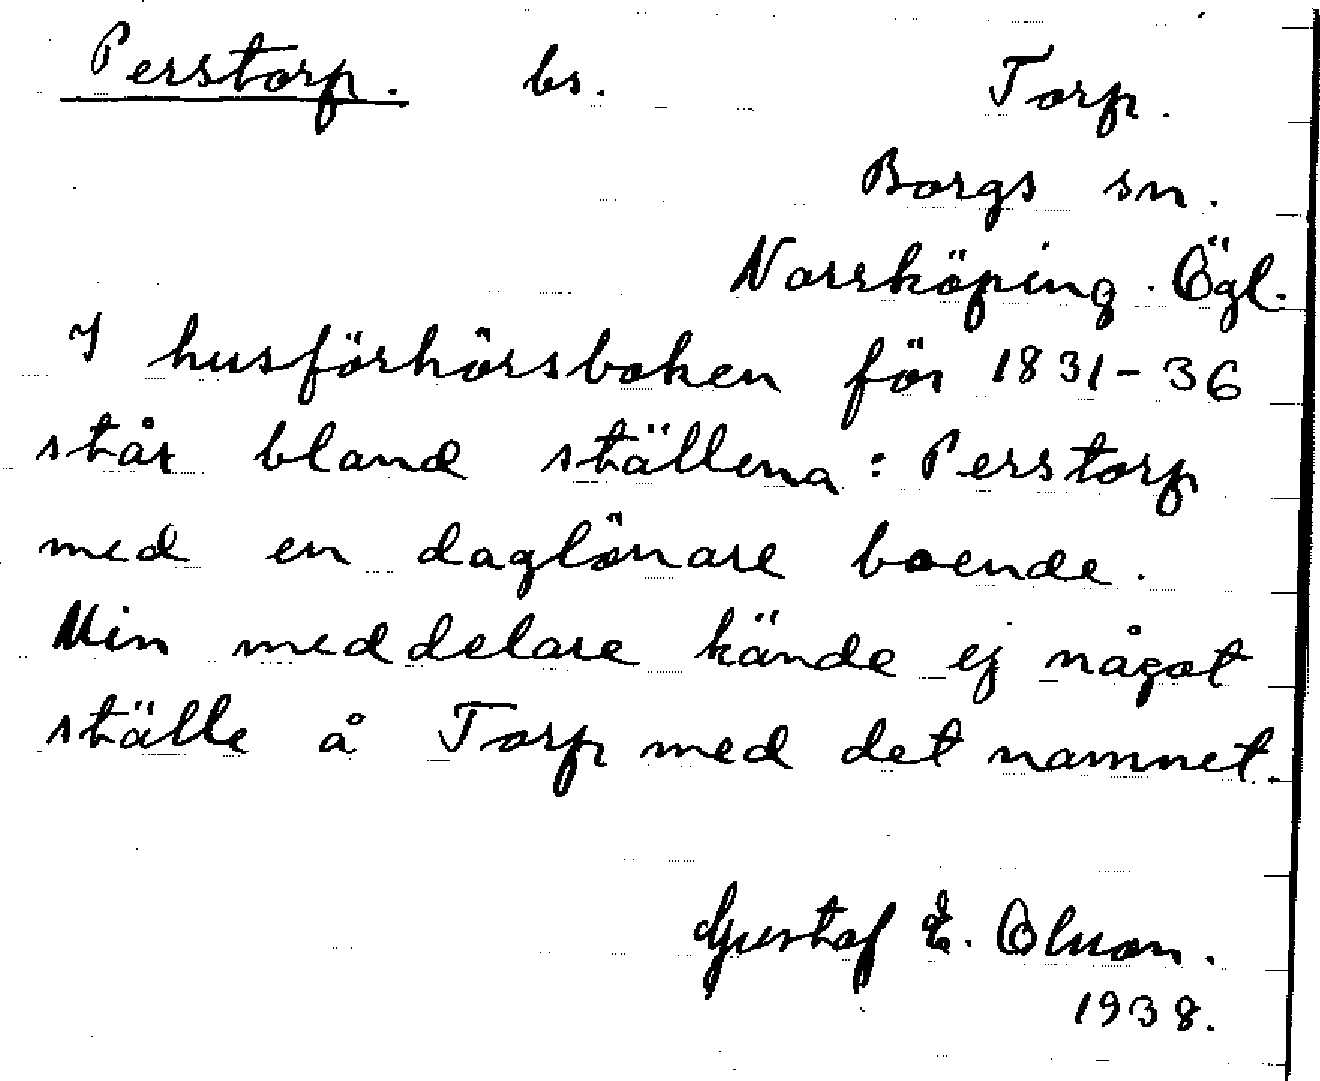 Perstorp. bs. Torp.
Borgs sn.
Norrköping. Ögl.
I husförhörsboken för 1831-36
står bland ställena: Perstorp
med en daglönare boende.
Min meddelare kände ej något
ställe å Torp med det namnet.
Gustaf E. Olsson.
1938.